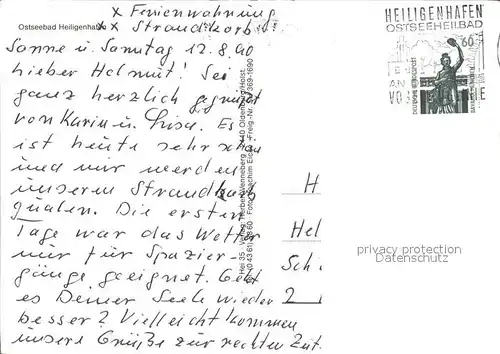 x Ferienwohnung
xx Strandkorb!
Ostseebad Heiligenhafen
Sonne u. Samstag 12.8.90
Lieber Helmut! Sei
ganz herzlich gegrüßt
von Karin u. Lisa. Es
ist heute sehr schön
und wir werden
unseren Strandkorb
qualen. Die ersten
Tage war das Wetter
nur für Spazier-
gänge geeignet. Geht
es Deiner Seele wieder
besser? Vielleicht kommen
unsere Grüße zur rechten Zeit.
Hei 35 Verlag Herbert Wenneberg 2440 Oldenburg/Holst.
HEILIGENHAFEN
OSTSEEHEILBAD
60
H
Hel
Sch
2
privacy protection
Datenschutz